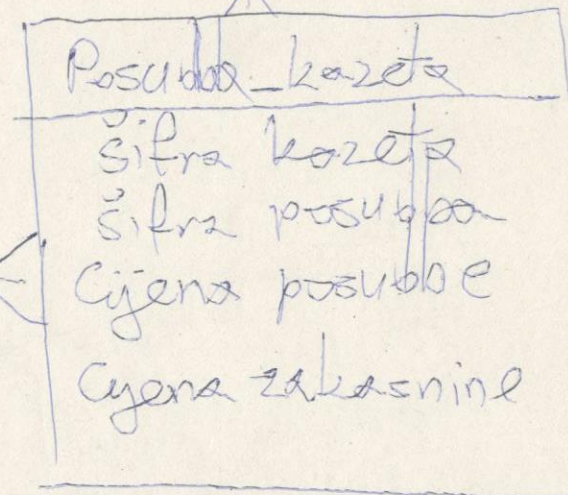 Posudba_kazeta
Šifra kazeta
Šifra posudba
Cijena posudbe
Cijena zakasnine